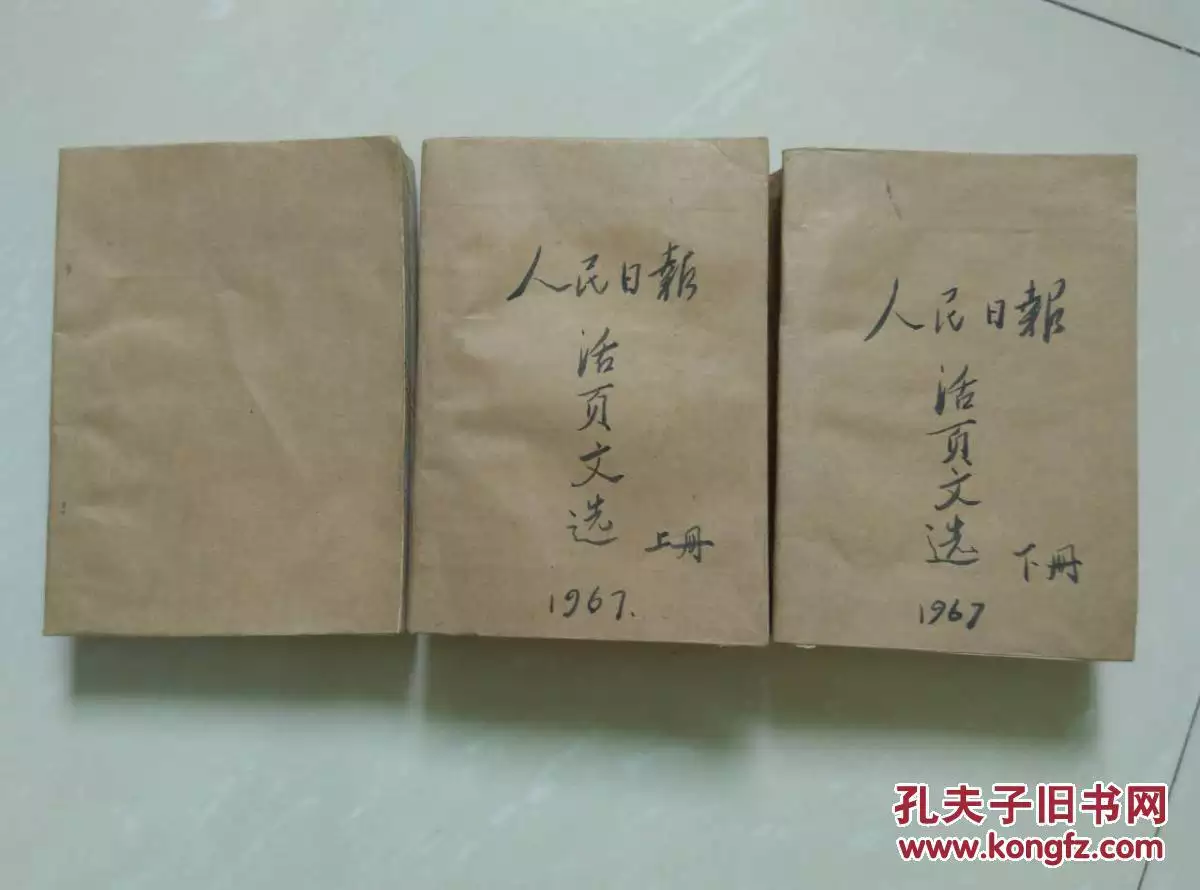 人民日報
活页文选
上册
1967.
人民日報
活页文选
下册
1967
孔夫子旧书网
www.kongfz.com